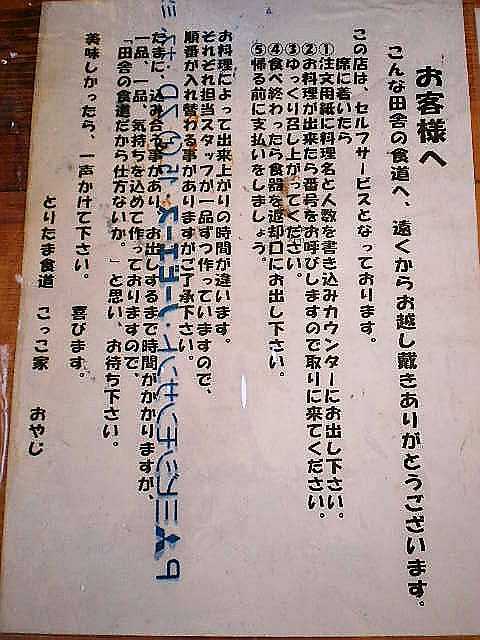 お客様へ
こんな田舎の食道へ、遠くからお越し戴きありがとうございます。
この店は、セルフサービスとなっております。
席に着いたら
①注文用紙に料理名と人数を書き込みカウンターにお出し下さい。
②お料理が出来たら番号をお呼びしますので取りに来てください。
③ゆっくり召し上がってください。
④食べ終わったら食器を返却口にお出し下さい。
⑤帰る前に支払いをしましょう。
お料理によって出来上がりの時間が違います。
それぞれ担当スタッフが一品ずつ作っていますので、
順番が入れ替わる事がありますがご了承下さい。
たまに、込み合う事があり、お出しするまで時間がかかりますが、
一品、一品、気持ちを込めて作っておりますので、
「田舎の食道だから仕方ないか。」と思い、お待ち下さい。
美味しかったら、一声かけて下さい。　喜びます。
とりたま食道　こっこ家　おやじ